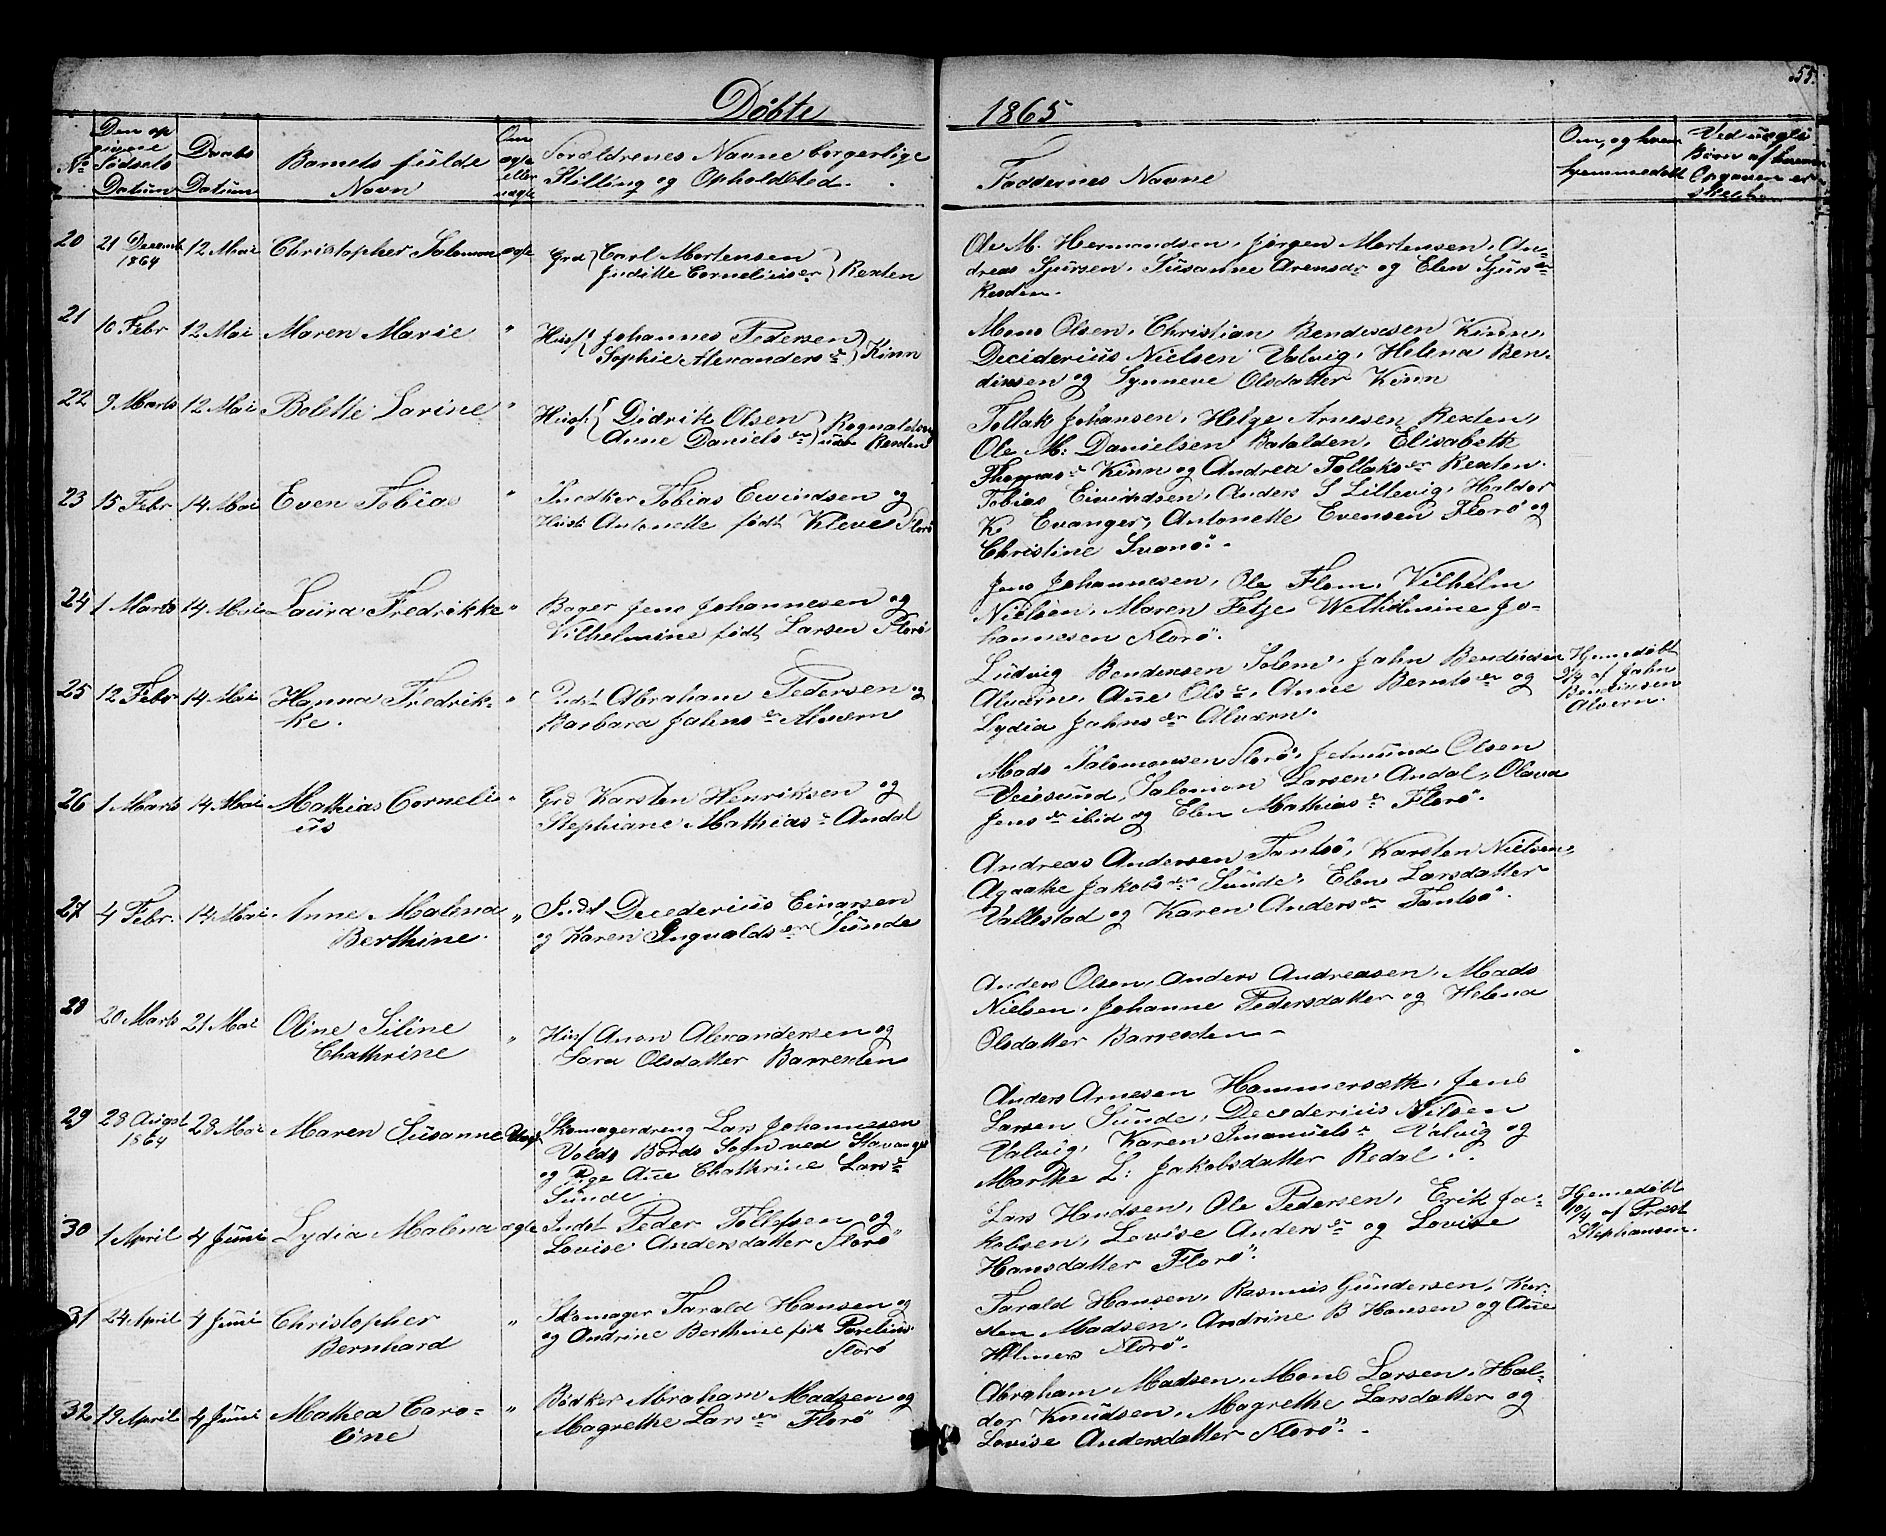 55.
Døbte 1865
No
Den opgivene Fødsels Datum
Daabs Datum
Barnets fulde Navn
Om ægte eller uægte
Forældrenes Navne borgerlige Stilling og Opholdsted.
Faddernes Navne
Om, og hvem hjemmedøbt
Ved uægte Børn af hvem Opgaven er skeet
20 21 Decemb 1864 12 Mai Christopher Salomon ægte
Grd Carl Mortensen
Juditte Corneliusdr Rexten
Ole M. Hermandsen, Jørgen Mortensen, An-
dreas Sjursen, Susanne Arensdr og Elen Sjursdr
Rexten.
21 10 Febr 12 Mai Maren Marie "
Husf Johannes Pedersen
Sophie Alexandersdr Kinn
Mons Olsen, Christian Bendixsen Kinn,
Deciderius Nielsen Valvig, Helena Ben-
dixsen og Synneve Olsdatter Kinn
22 9 Marts 12 Mai Bolette Lovine "
Husf. Didrik Olsen
Anne Danielsdr Rognaldsvg
under Rexten
Tollak Johansen, Helge Arnesen Rexten,
Ole M. Danielsen Batalden, Elisabeth
Thomasdr Kinn og Andrea Tollaksdr Rexten.
23 15 Febr. 14 Mai Even Tobias "
Snedker Tobias Eivindsen og
Hust. Antonette født Kleve Florø
Tobias Eivindsen, Anders S Lillevig, Haldor
K. Evanger, Antonette Evensen Florø og
Christine Svanø. -
24 1 Marts 14 Mai Laura Fredrikke "
Bager Jens Johannesen og
Vilhelmine født Larsen Florø
Jens Johannesen, Ole Flom, Vilhelm
Nielsen, Maren Fetje Welhelmine Jo-
hannesen Florø.
25 12 Febr 14 Mai Hanna Fredrik-
ke. "
Indst Abraham Pedersen og
Barbara Jahnsdr Alværn
Ludvig Bendixsen Solem, Jahn Bendixsen
Alværn, Ane Olsdr, Anne Berntsdr og
Lydia Jahnsdr Alværn.
Hjemedøbt
af Jahn
Bendixsen
Alvern.
26 1 Marts 14 Mai Mathias Corneli-
us "
Grd Karsten Henriksen og
Stephiane Mathiasdr Andal
Mads Salomonsen Florø, Jetmund Olsen
Veiesund, Salomon Larsen Andal, Olava
Jensdr ibid og Elen Mathiasdr Florø.
27 4 Febr. 14 Mai Anne Malena
Berthine. "
Indst Decederius Einarsen
og Karen Ingvaldsdr Sunde
Andreas Andersen Tansø, Karsten Nielsen,
Agathe Jakobsdr Sunde, Elen Larsdatter
Vallestad og Karen Andersdr Tansø.
28 20 Marts 21 Mai Oline Siline
Chathrine "
Husf Anon Alexandersen og
Sara Olsdatter Barrexten
Anders Olsen, Anders Andreasen, Mads
Nielsen, Johanne Pedersdatter og Helena
Olsdatter Barrexten -
29 28 Augst 1864 28 Mai Maren Susanne Uægte
Skomagerdreng Lars Johannesen
Volds Bords Sogn ved Stavanger
og Pige Ane Chathrine Larsdr
Sunde
Anders Arnesen Hammersæth, Jens
Larsen Sunde, Decederius Nilsen
Valvig, Karen Imanuelsdr Valvig og
Marthe L. Jakobsdatter Redal.
30 1 April 4 Juni Lydia Malena ægte
Indst Peder Tollefsen og
Lovise Andersdatter Florø
Lars Hansen, Ole Pedersen, Erik Ja-
kobsen, Lovise Andersdr og Lovise
Hansdatter Florø.
Hjemedøbt
10/4 af Prost
Stephansen.
31 24 April 4 Juni Christopher
Bernhard "
Skomager Tarald Hansen og
og Andrine Berthine født Parelius
Florø
Tarald Hansen, Rasmus Gundersen, Kar-
sten Madsen, Andrine B Hansen og Ane
Hilmers Florø.
32 19 April 4 Juni Mathea Caro-
line "
Bødker Abraham Madsen og
Magrethe Larsdr Florø
Abraham Madsen, Mons Larsen, Hal-
dor Knudsen, Magrethe Larsdatter og
Lovise Andersdatter Florø. -